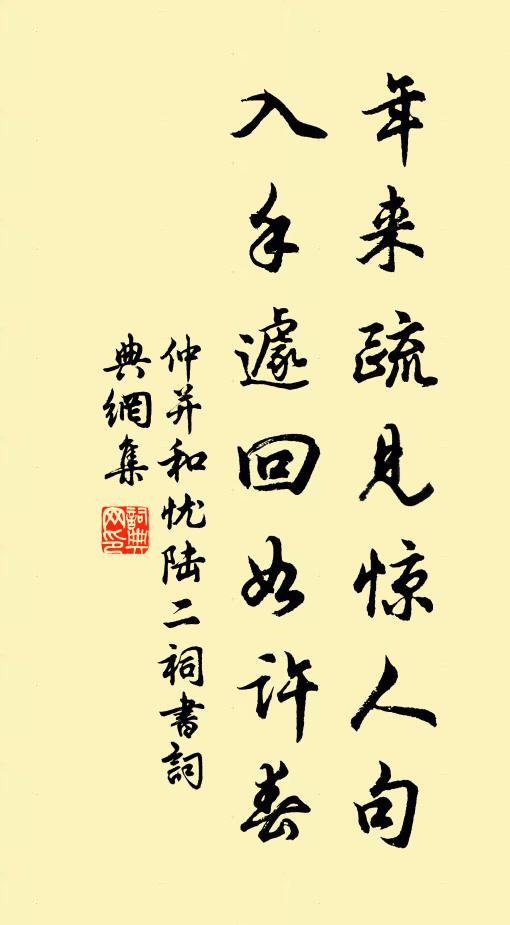 年来疏见惊人句
入手遽回如许春
仲并和忱陆二祠書詞
典網集
詞典网印